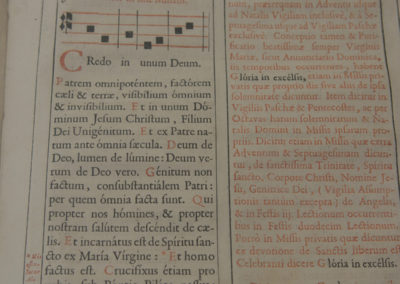 Credo in unum Deum.
Patrem omnipoténtem, factórem
cæli & terræ, visibílium ómnium
& invisibílium. Et in unum Dó-
minum Jesum Christum, Fílium
Dei Unigénitum. Et ex Patre na-
tum ante ómnia sæcula. Deum de
Deo, lumen de lúmine: Deum ve-
rum de Deo vero. Génitum non
factum, consubstantiálem Patri:
per quem ómnia facta sunt. Qui
propter nos hómines, & propter
nostram salútem descéndit de cæ-
lis. Et incarnátus est de Spíritu san-
cto ex María Vírgine: * Et homo
factus est. Crucifíxus étiam pro
num, præterquam in Adventu usque
ad Natalis Vigiliam inclusivè, & à Se-
ptuagesima usque ad Vigiliam Paschæ
exclusivè.
beatissimæ semper Virginis
Mariæ, sicut Annuntiatio Dominica,
in temporibus occurrerent, habent
Glória in excélsis, etiam in Missis pri-
vatis quæ proprio die sive alias de ipsa
solemnitate dicuntur. Item dicitur in
Vigiliis Paschæ & Pentecostes, ac per
Octavas harum solemnitatum &
Natalis Domini in Missis ipsarum pro-
priis. Dicitur etiam in Missis quæ extra
Adventum & Septuagesimam dicun-
tur, de sanctissima Trinitate, Spiritu
sancto, Corpore Christi, Nomine Je-
su, Genitrice Dei, (Vigilia Assumpt-
ionis tantùm excepta) de Angelis,
& in Festis iij. Lectionum occurrenti-
bus in Festis duodecim Lectionum.
Porrò in Missis privatis quæ dicuntur
ex devotione de Sanctis liberum est
Celebranti dicere Glória in excélsis.